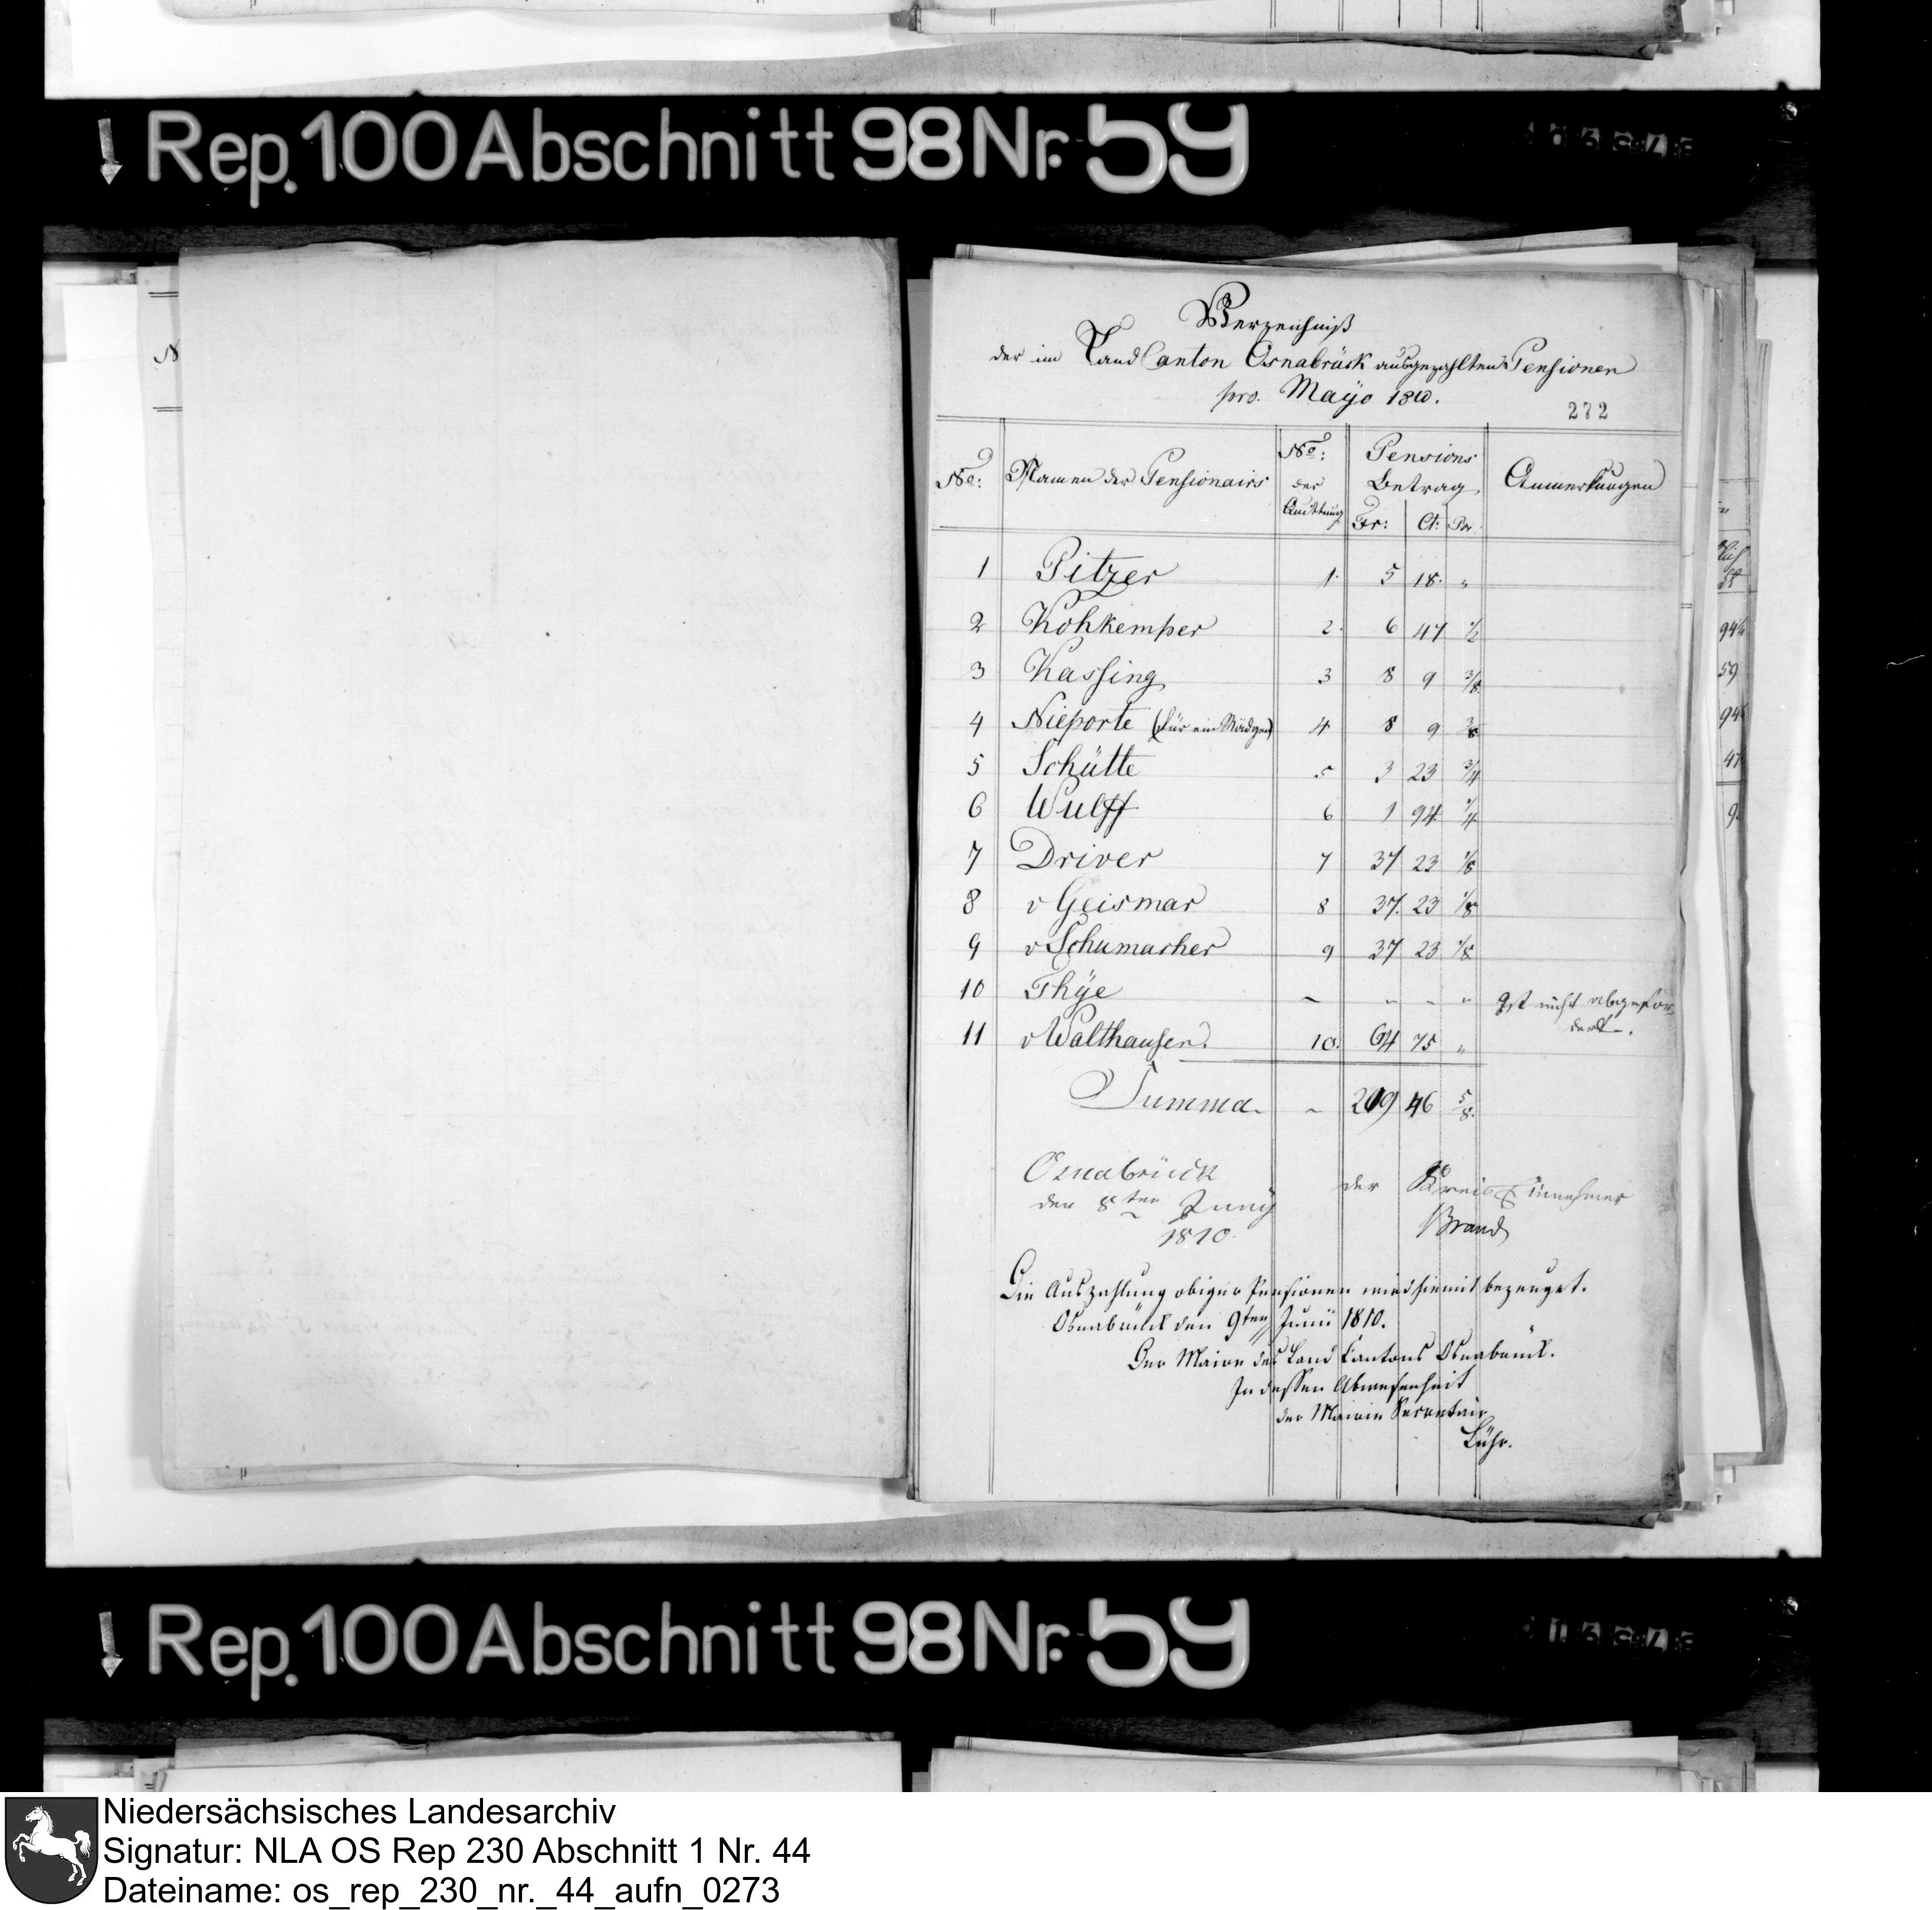 Rep. 100 Abschnitt 98 Nr. 59
Verzeichniß
der im Land Canton Osnabrück ausgezahlten Pensionen
pro. Mayo 1810.
272
No: Namen der Pensionairs No: der Quittung Pensions Betrag Anmerkungen
Fr: Ct:
1 Pitzer 1. 5 18. „
2 Kohkemper 2. 6 47 1/2
3 Kassing 3 8 9 3/8
4 Nieporte (für ein Mädgen) 4 8 9 3/8
5 Schütte 5 3 23 3/4
6 Wulff 6 1 94 1/4
7 Driver 7 37 23 1/8
8 v Geismar 8 37. 23 1/8
9 v Schumacher 9 37 23 1/8
10 Thÿe ~ „ „ „ Ist nicht abgefor-
dert.
11 v Walthausen. 10. 64 75 „
Summa ~ 209 46 5/8.
Osnabrück
den 8ten Junÿ
1810.
der Kreis Einnehmer
Brand
Die Auszahlung obiger Pensionen wird hiemit bezeuget.
Osnabrück den 9ten Junii 1810.
Der Maire des Land Cantons Osnabrück.
In dessen Abwesenheit
der Mairie Secretair
Lühr.
94
59
94
47
9
Rep. 100 Abschnitt 98 Nr. 59
Niedersächsisches Landesarchiv
Signatur: NLA OS Rep 230 Abschnitt 1 Nr. 44
Dateiname: os_rep_230_nr._44_aufn_0273